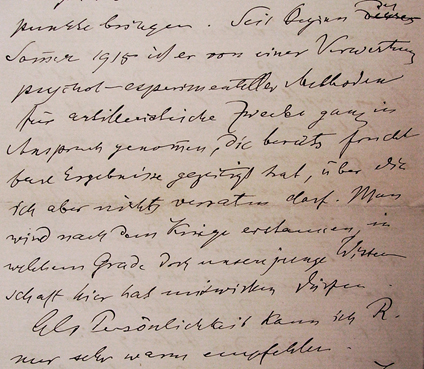 punkte bringen. Seit Beginn des
Sommer 1915 ist er von einer Verwertung
psychol-experimenteller Methoden
für artilleristische Zwecke ganz in
Anspruch genommen, die bereits frucht
bare Ergebnisse gezeitigt hat, über die
ich aber nichts verraten darf. Man
wird nach dem Kriege erstaunen, in
welchem Grade doch unsere junge Wissen
schaft hier hat mitwirken dürfen.
Als Persönlichkeit kann ich R.
nur sehr warm empfehlen.